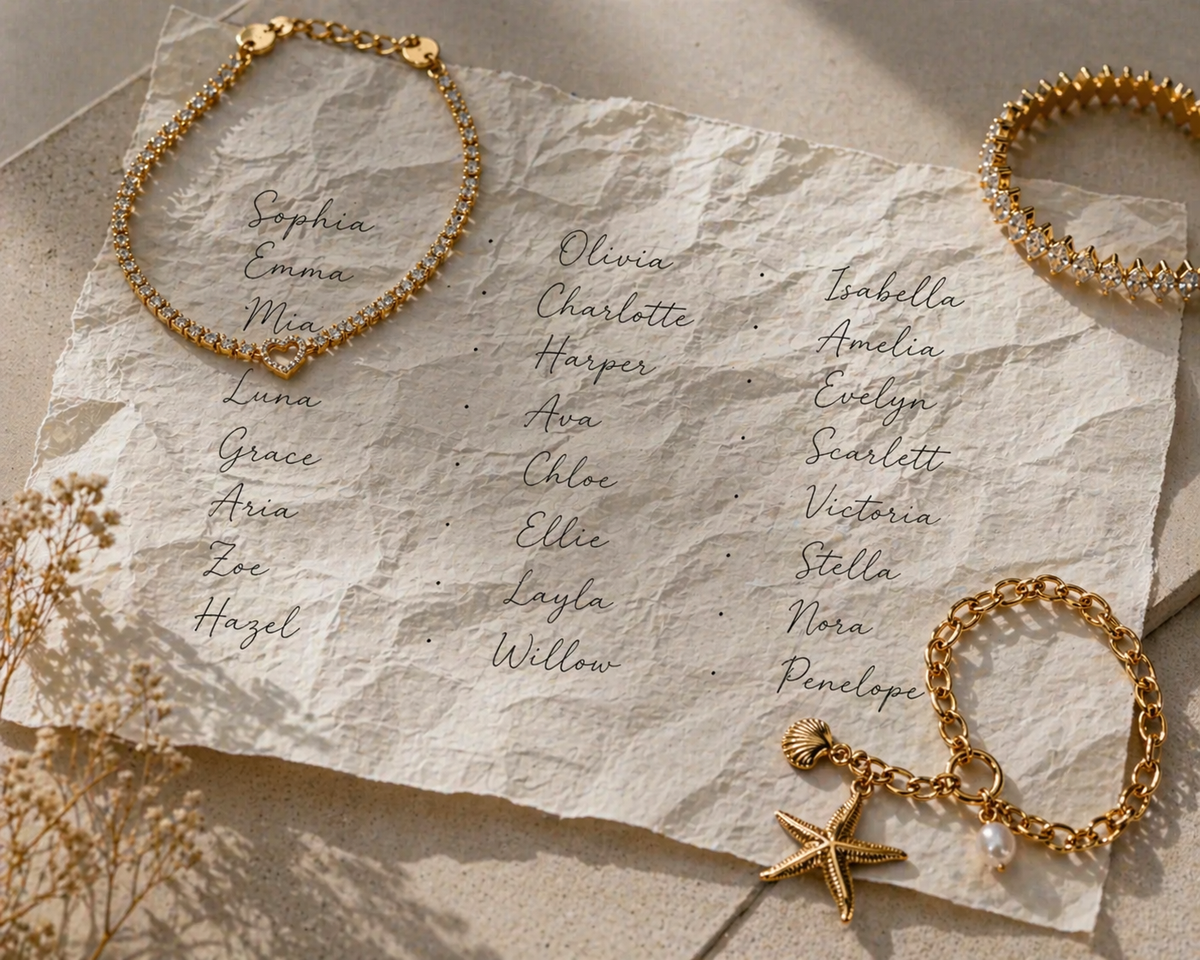 Sophia · Olivia · Isabella
Emma · Charlotte · Amelia
Mia · Harper · Evelyn
Luna · Ava · Scarlett
Grace · Chloe · Victoria
Aria · Ellie · Stella
Zoe · Layla · Nora
Hazel · Willow · Penelope